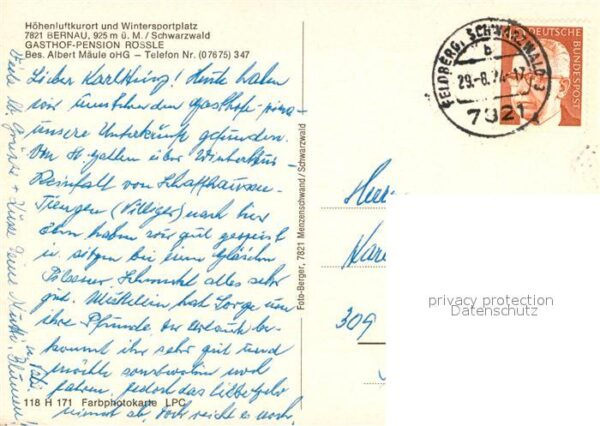 Höhenluftkurort und Wintersportplatz
7821 BERNAU, 925 m ü. M. / Schwarzwald
GASTHOF-PENSION RÖSSLE
Bes. Albert Mäule oHG – Telefon Nr. (07675) 347
Lieber Karlheinz! Heute haben
wir in umstehendem Gasthof
unsere Unterkunft gefunden.
Von St. Gallen über Winterthur-
Rheinfall von Schaffhausen-
Tiengen (Villiger) nach hier
haben wir gut gespeist
u. sitzen bei einem Gläschen
Pilsener. Schmeckt alles sehr
gut. hat Sorge um
ihre Pfunde, der Urlaub be-
kommt ihr sehr gut und
möchte noch
fahren, jedoch das liebe Geld
nimmt ab, doch reicht es noch.
118 H 171 Farbphotokarte LPC
Viele lb. Grüsse + Küsse Deine
u. Vati
Foto-Berger, 7821 Menzenschwand / Schwarzwald
FELDBERG, SCHWARZWALD 3
b
29.-8.74-17
7821
DEUTSCHE
BUNDESPOST
Herrn
309
privacy protection
Datenschutz